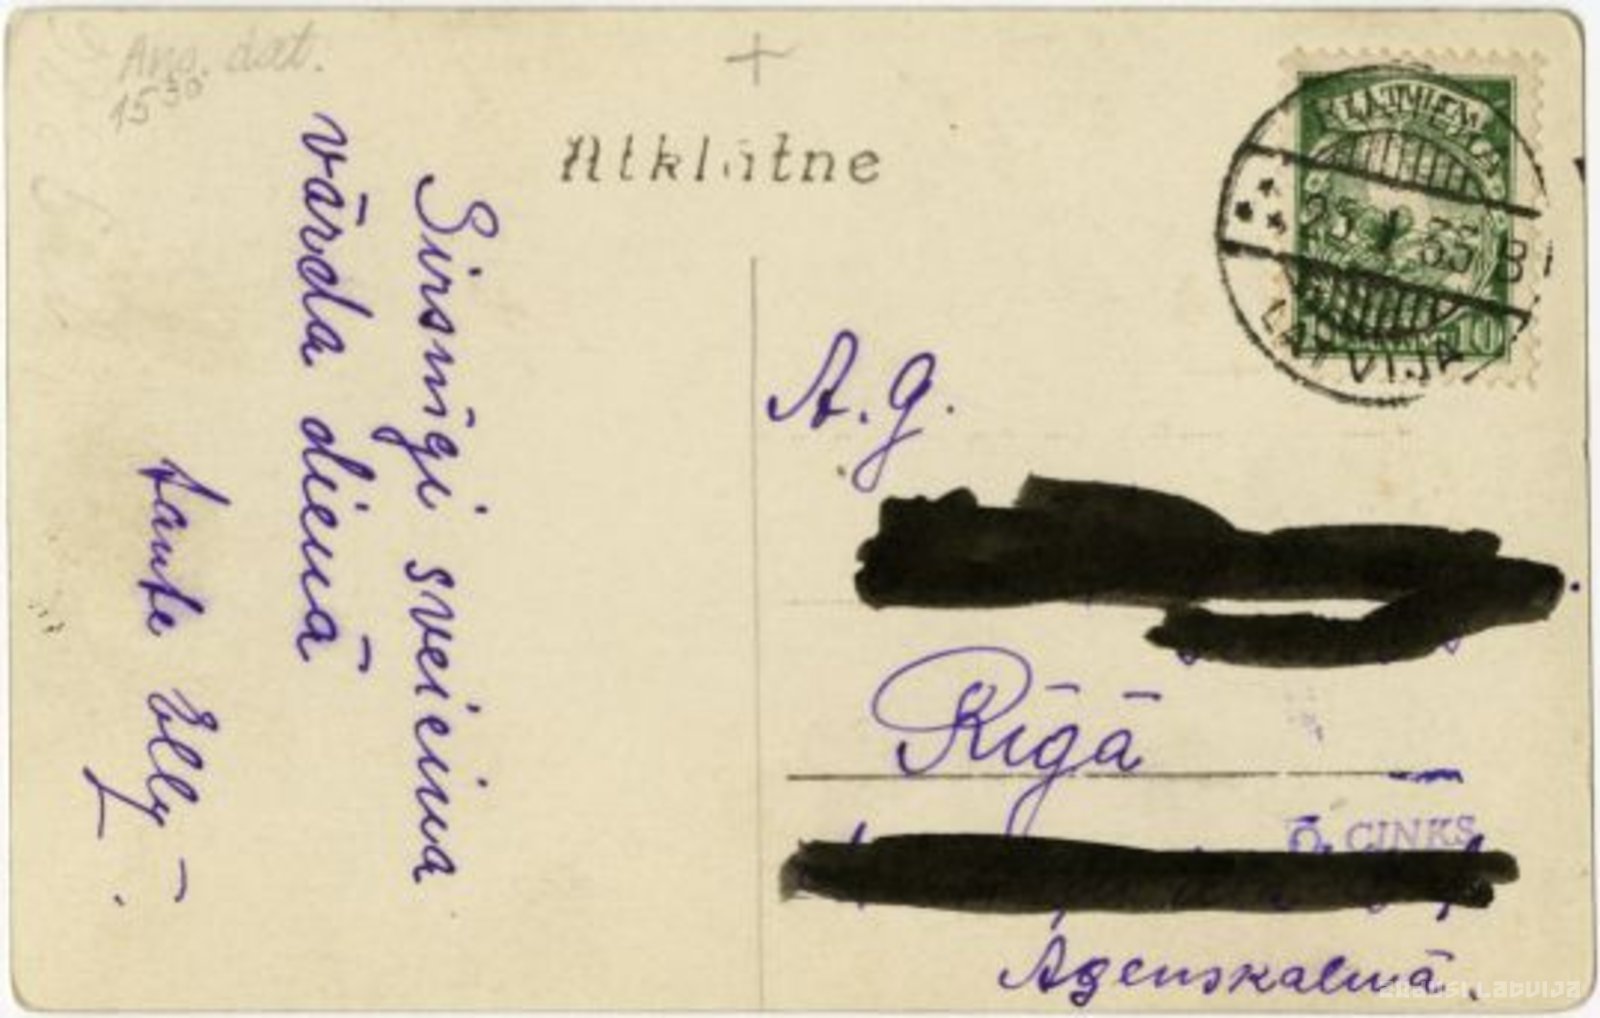 Ans. dat.
15 30
Atklātne
Sirsnīgi sveicina
vārda dienā
tante Elly
KLAJVIEMA
23 1 33 B
LATVIJA
10
A. g.
Rīgā
O. CINKS
Agenskalnā.
ZUDUSI LATVIJA